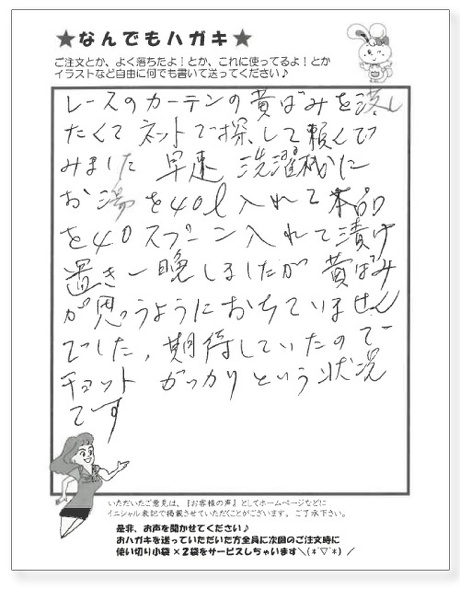 ★なんでもハガキ★
ご注文とか、よく落ちたよ！とか、これに使ってるよ！とか
イラストなど自由に何でも書いて送ってください♪
レースのカーテンの黄ばみを落し
たくて ネットで探して頼んで
みました 早速 洗濯機に
お湯を40ℓ入れて本品
を40スプーン入れて漬け
置き一晩しましたが 黄ばみ
が思うようにおちていません
でした，期待していたので
チョット がっかりという状況
です
いただいたご意見は、『お客様の声』としてホームページなどに
イニシャル表記で掲載させていただくことがございます。ご了承下さい。
是非、お声を聞かせてください♪
おハガキを送っていただいた方全員に次回のご注文時に
使い切り小袋×2袋をサービスしちゃいます＼(*´▽`*)／